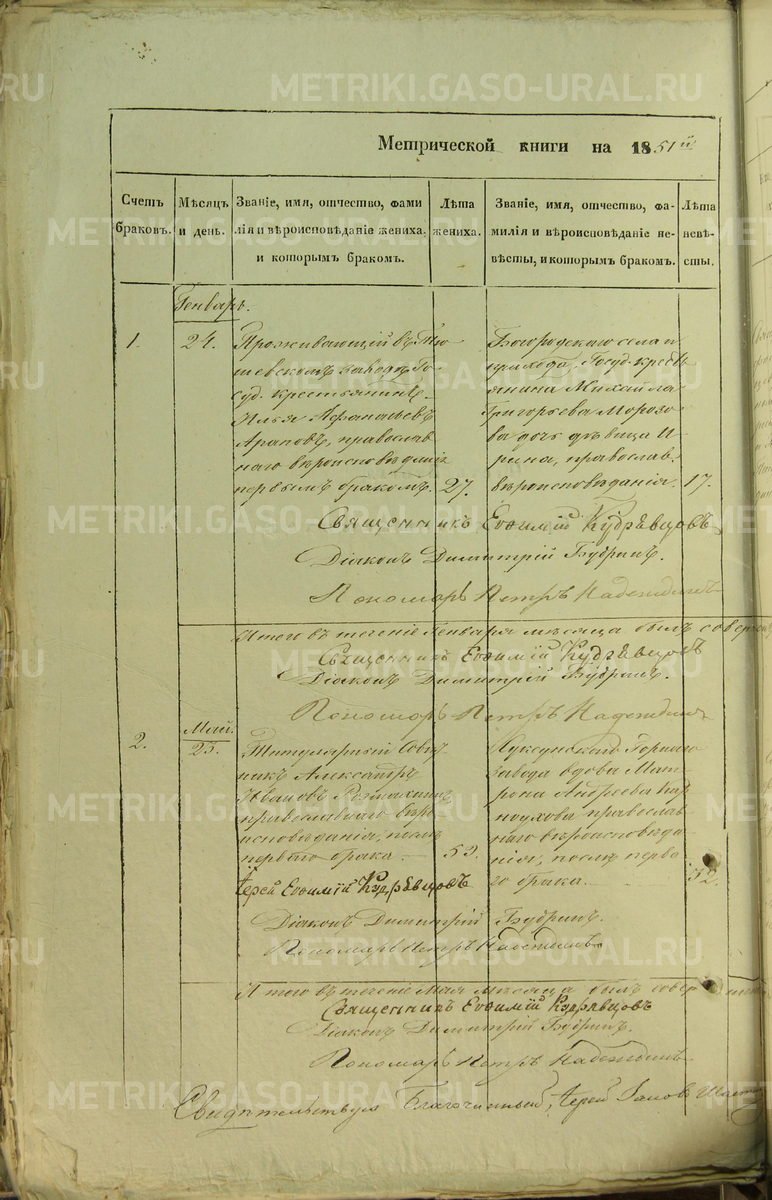 METRIKI.GASO-URAL.RU
Метрической книги на 1851й
Счетъ браковъ.
Мѣсяцъ и день.
Званіе, имя, отчество, фами
лія и вѣроисповѣданіе жениха,
и которымъ бракомъ.
Лѣта
жениха.
Званіе, имя, отчество, фа-
милія и вѣроисповѣданіе не-
вѣсты, и которымъ бракомъ.
Лѣта
невѣ-
сты.
Генварь.
1.
24.
Проживающій въ
заводѣ Го-
суд. крестьянинъ
Илья Афанасьевъ
Араповъ, православ
наго вѣроисповѣданія
первымъ бракомъ.
27.
Богородскаго села и
прихода, Госуд. кресть
янина Михайла
Григорьева Морозо
ва дочь дѣвица И
рина, православ.
вѣроисповѣданія.
17.
Священникъ Евѳимій Кудрявцовъ
Діаконъ Димитрій Бубринъ.
Пономарь Петръ Надеждинъ
Итого въ теченіе Генваря мѣсяца былъ совер
Священникъ Евѳимій Кудрявцовъ
Діаконъ Димитрій Бубринъ.
Пономарь Петръ Надеждинъ
2.
Май.
25.
Титулярный Совѣт
никъ Александръ
Ивановъ
православнаго вѣро
исповѣданія, послѣ
перваго брака.
53.
Горнаго
завода вдова Мат
рона Андреева Кар
поухова православ
наго вѣроисповѣда
нія, послѣ перва
го брака.
Іерей Евѳимій Кудрявцовъ
Діаконъ Димитрій Бубринъ.
Пономарь Петръ Надеждинъ
Итого въ теченіе Мая мѣсяца былъ совер
Священникъ Евѳимій Кудрявцовъ
Діаконъ Димитрій Бубринъ.
Пономарь Петръ Надеждинъ
Свидѣтельствуя Благочинный, Іерей